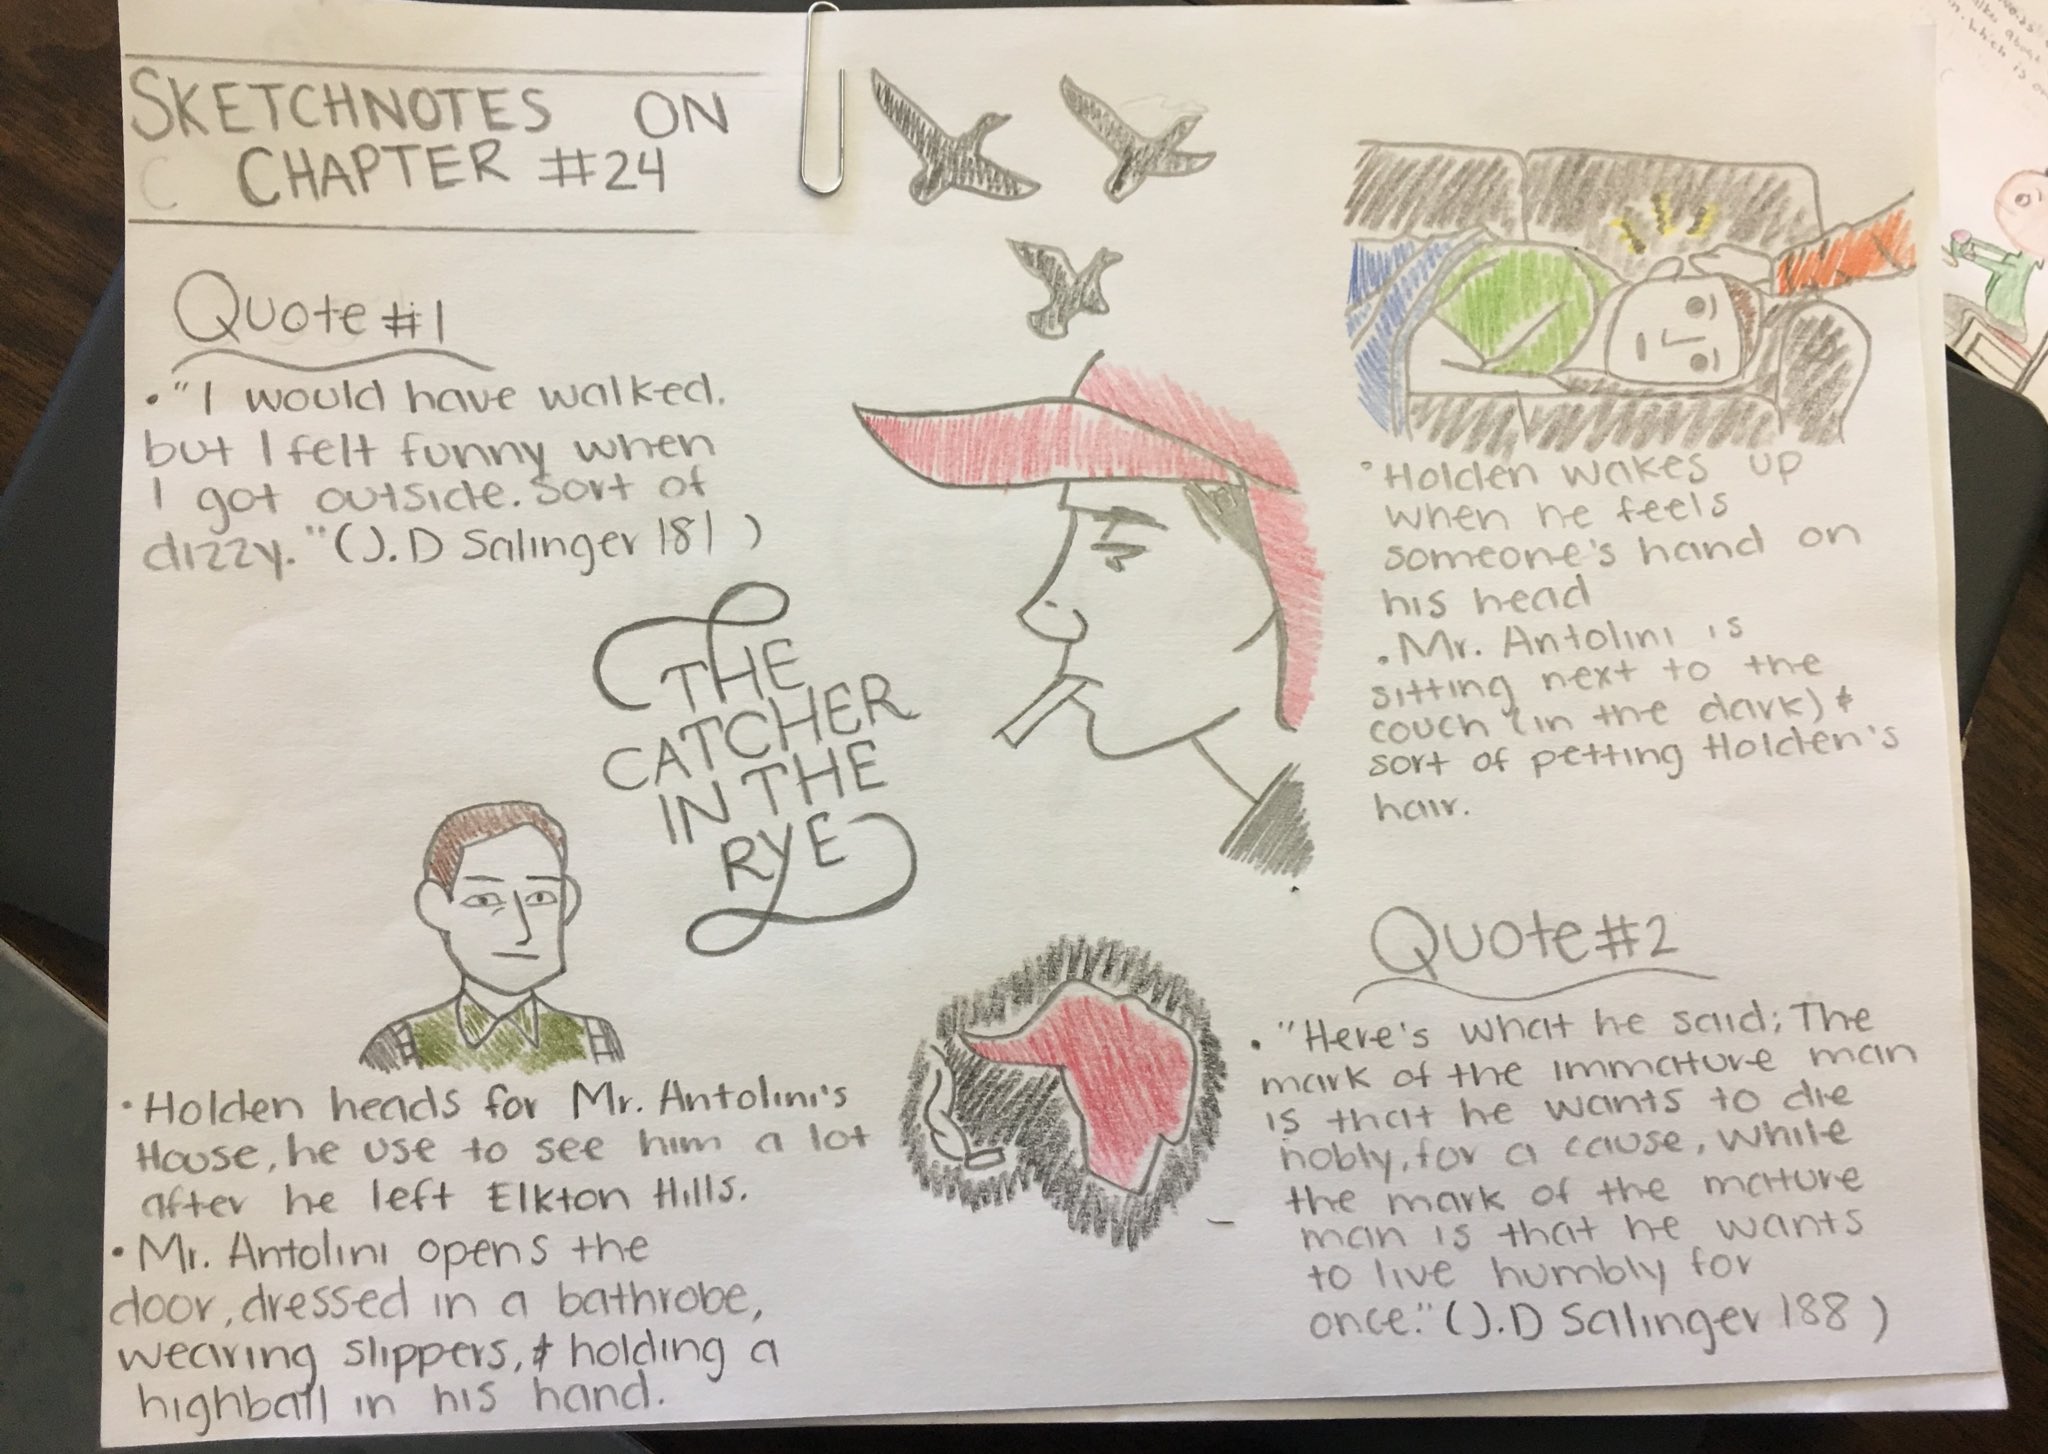 SKETCHNOTES ON
CHAPTER #24
Quote #1
• "I would have walked,
but I felt funny when
I got outside. Sort of
dizzy." (J.D Salinger 181)
THE
CATCHER
IN THE
RYE
• Holden heads for Mr. Antolini's
House, he use to see him a lot
after he left Elkton Hills.
• Mr. Antolini opens the
door, dressed in a bathrobe,
wearing slippers, & holding a
highball in his hand.
• Holden wakes up
when he feels
someone's hand on
his head
• Mr. Antolini is
sitting next to the
couch (in the dark) &
sort of petting Holden's
hair.
Quote #2
• "Here's what he said; The
mark of the immature man
is that he wants to die
nobly, for a cause, while
the mark of the mature
man is that he wants
to live humbly for
once." (J.D Salinger 188)
about
which is